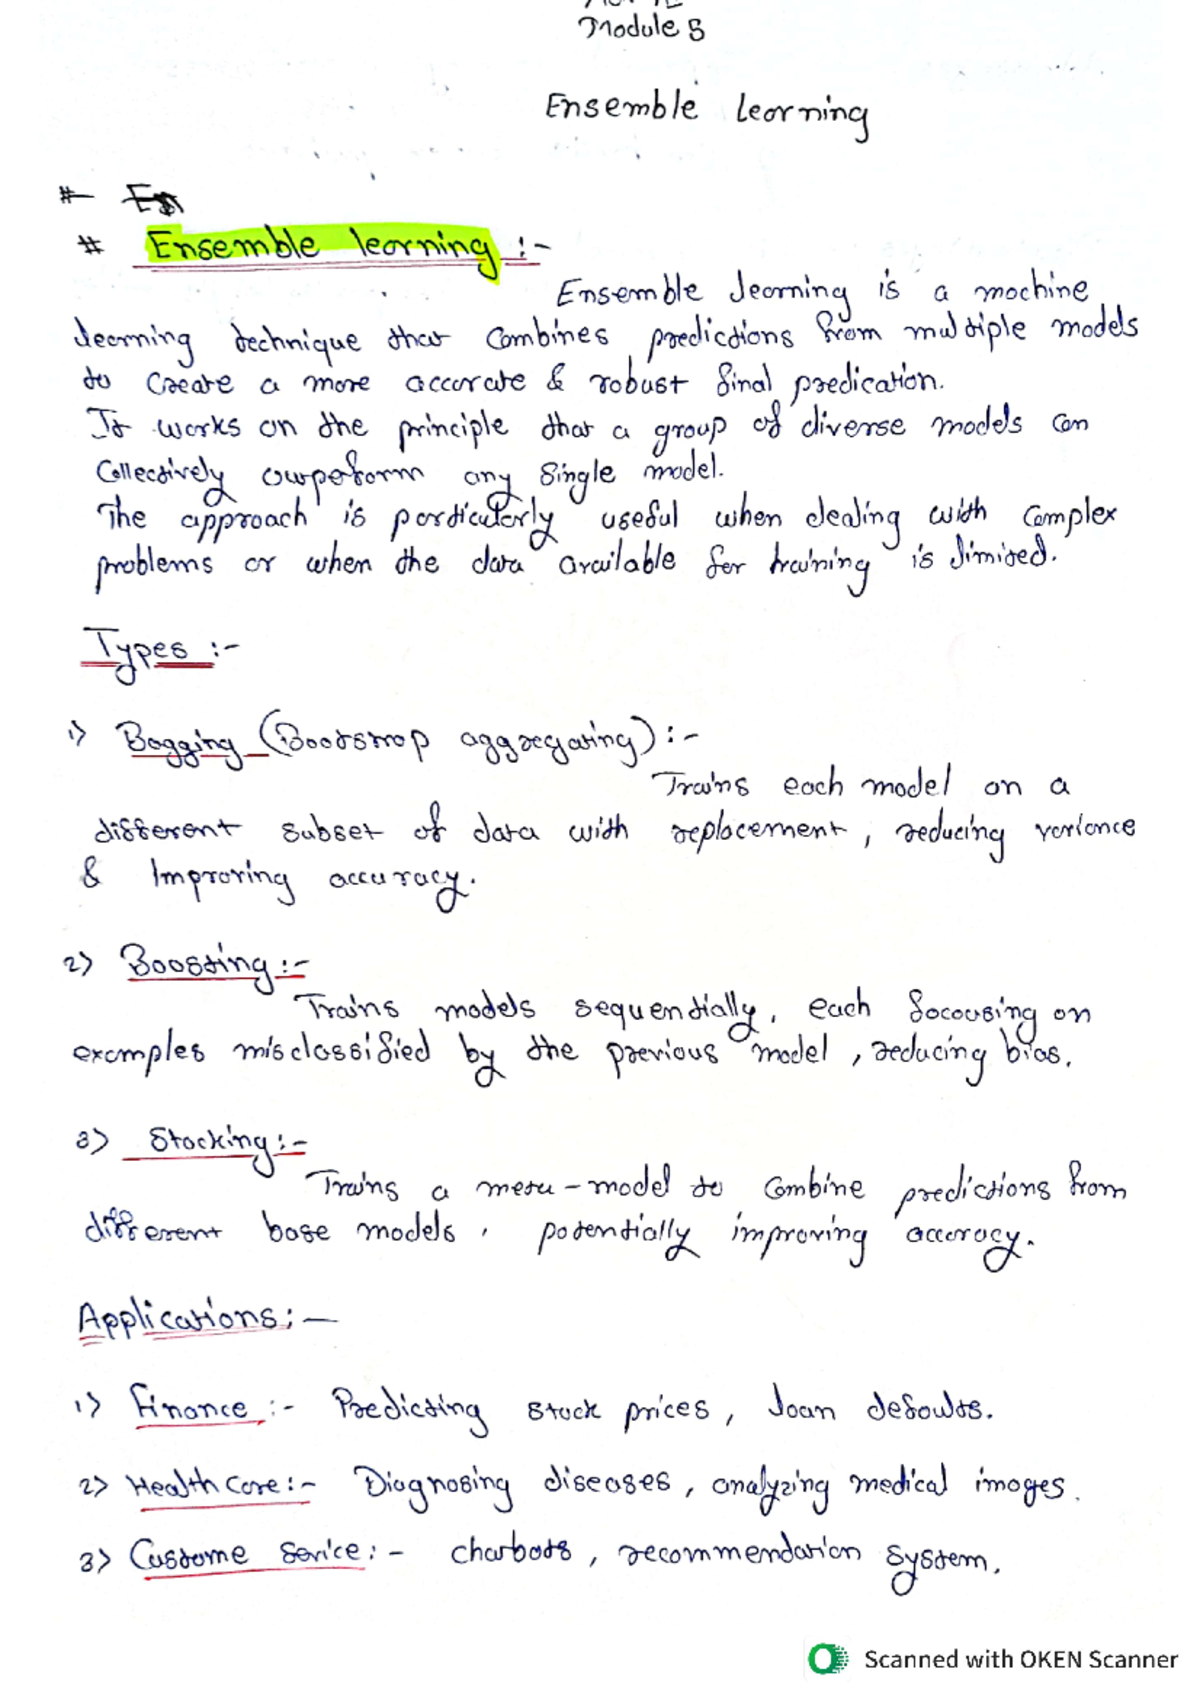 Module 5
Ensemble learning
#
# Ensemble learning :-
Ensemble learning is a machine
learning technique that combines predictions from multiple models
to create a more accurate & robust final predication.
It works on the principle that a group of diverse models can
collectively ourperform any single model.
The approach is particularly useful when dealing with complex
problems or when the data available for training is limited.
Types :-
1) Bagging (Bootstrap aggregating) :-
Trains each model on a
different subset of data with replacement, reducing variance
& Improving accuracy.
2) Boosting :-
Trains models sequentially, each focousing on
examples misclassified by the previous model, reducing bias.
3) Stacking :-
Trains a meta-model to combine predictions from
different base models, potentially improving accuracy.
Applications :-
1) Finance :- Predicting stock prices, loan defaults.
2) Health Care :- Diagnosing diseases, analyzing medical images.
3) Custome Service :- chatbots, recommendation system.
Scanned with OKEN Scanner